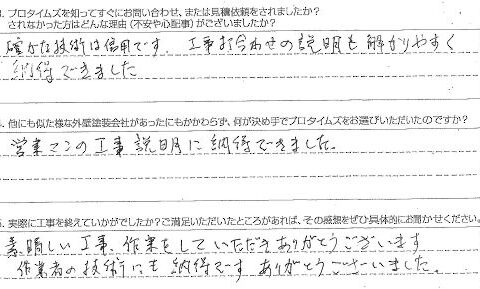 3. プロタイムズを知ってすぐにお問い合わせ、または見積依頼をされましたか?
されなかった方はどんな理由(不安や心配事)がございましたか?
確かな技術は信用です 工事お合わせの説明も解かりやすく
納得できました
4. 他にも似た様な外壁塗装会社があったにもかかわらず、何が決め手でプロタイムズをお選びいただいたのですか?
営業マンの工事説明に納得できました。
5. 実際に工事を終えていかがでしたか?ご満足いただいたところがあれば、その感想をぜひ具体的にお聞かせください。
素晴しい工事、作業をしていただきありがとうございます
作業者の技術にも納得です ありがとうございました。